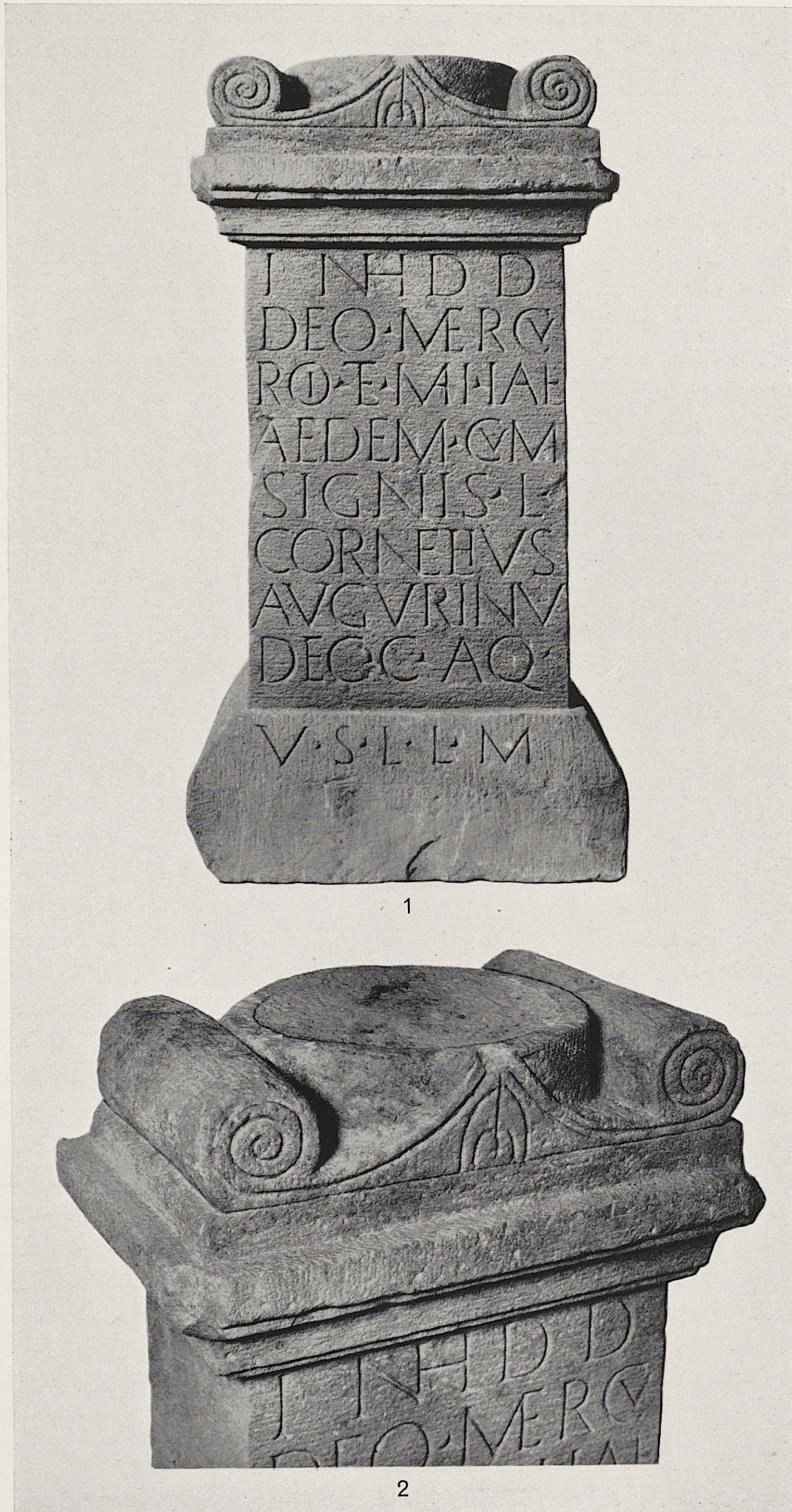 I N H D D
DEO·MERCV
RIO·ET·MAIIAE
AEDEM·CVM
SIGNIS·L·
CORNELIVS
AVGVRINV
DEC·C·AQ·
V·S·L·L·M
1
I N H D D
DEO·MERCV
2